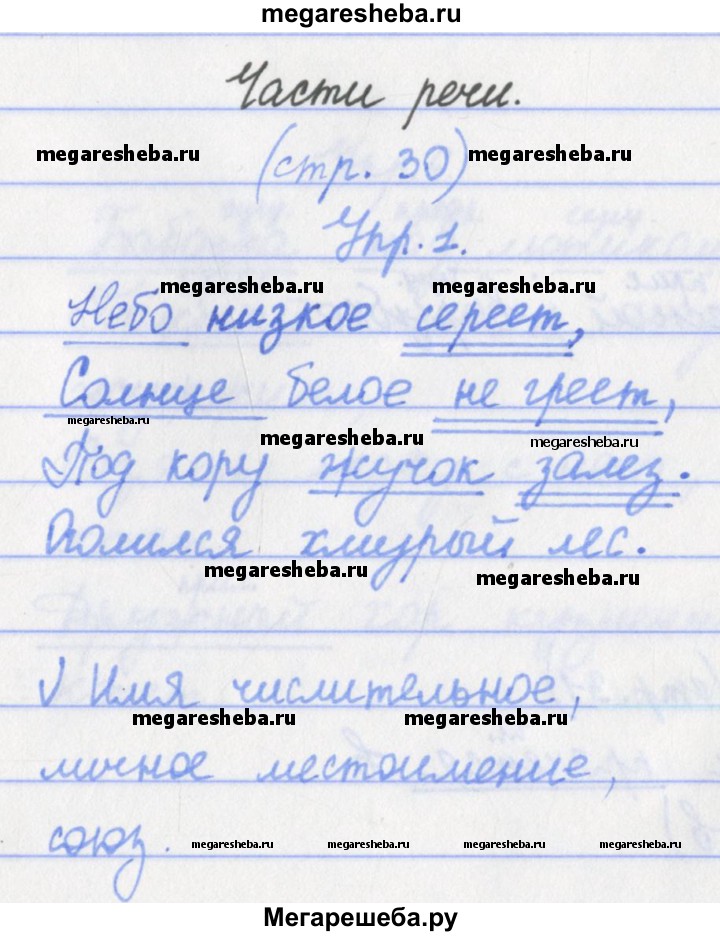 megaresheba.ru
Части речи.
megaresheba.ru (стр. 30) megaresheba.ru
Упр. 1.
megaresheba.ru megaresheba.ru
Небо низкое сереет,
Солнце белое не греет,
megaresheba.ru megaresheba.ru megaresheba.ru
Под кору жучок залез.
Оголился хмурый лес.
megaresheba.ru megaresheba.ru
√ Имя числительное,
megaresheba.ru megaresheba.ru
личное местоимение,
союз. megaresheba.ru megaresheba.ru megaresheba.ru megaresheba.ru
Мегарешеба.ру